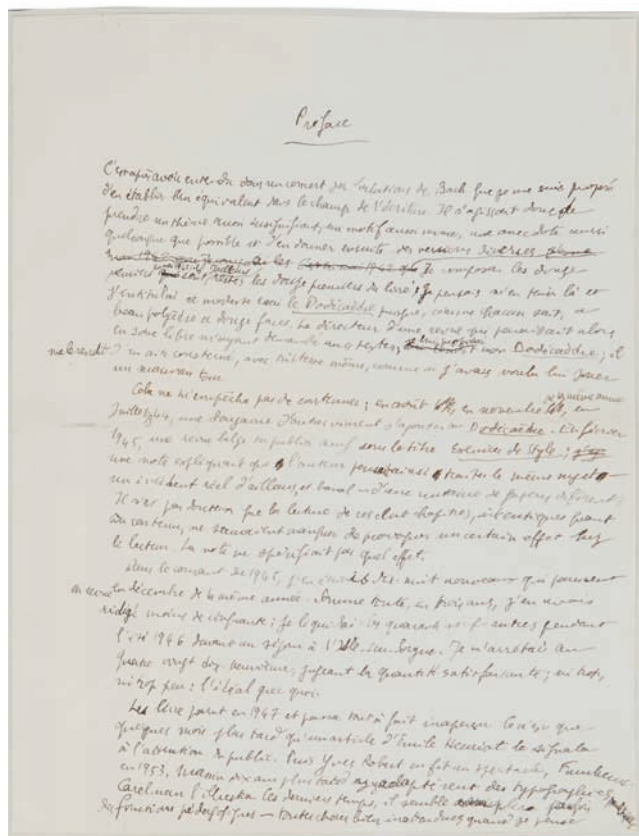 Préface
C'est après avoir entendu dans un concert des Variations de Bach que je me suis proposé
d'en établir un équivalent dans le champ de l'écriture. Il s'agissait donc de
prendre un thème insignifiant, un motif aussi mince, une anecdote aussi
quelconque que possible et d'en donner ensuite des versions diverses
les Je composai les douze
premiers les douze premiers du livre; Je pensais m'en tenir là et
J'intitulai ce modeste essai le Dodécaèdre puisque, comme chacun sait, ce
beau polyèdre a douze faces. Le directeur d'une revue qui paraissait alors
en zone libre m'ayant demandé un texte, mon Dodécaèdre; il
me le rendit d'un air consterné, avec tristesse même, comme si j'avais voulu lui jouer
un mauvais tour.
Cela ne m'empêcha pas de continuer; en août en novembre de la même année en
Juillet 44, une douzaine d'autres vinrent s'ajouter au Dodécaèdre. En février
1945, une revue belge en publia neuf sous le titre Exercices de Style;
une note expliquait que l'auteur ainsi traiter le même sujet
un incident réel d'ailleurs, et banal d'une de façons différentes
Il n'est pas douteux que la lecture de ces chapitres, identiques quant
au contenu, ne sauraient manquer de provoquer un certain effet chez
le lecteur. La note ne spécifiait pas quel effet.
Dans le courant de 1945, j'en huit nouveaux qui parurent
en décembre de la même année. Somme toute, en trois ans, j'en avais
rédigé moins de cinquante; je les quarante neuf autres pendant
l'été 1946 durant un séjour à l'Isle-sur-Sorgue. Je m'arrêtai au
quatre vingt dix neuvième, jugeant la quantité satisfaisante; ni trop,
ni trop peu: l'idéal grec quoi.
Le livre parut en 1947 et passa tout à fait inaperçu. Ce n'est que
quelques mois plus tard qu'un article d'Emile Henriot le signala
à l'attention du public. Puis Yves Robert en fit un spectacle,
en 1953, Massin dix ans plus tard typographique
Carelman l'illustra. Ces derniers temps, il semble parfois
des fonctions pédagogiques — toutes choses bien inattendues quand je pense